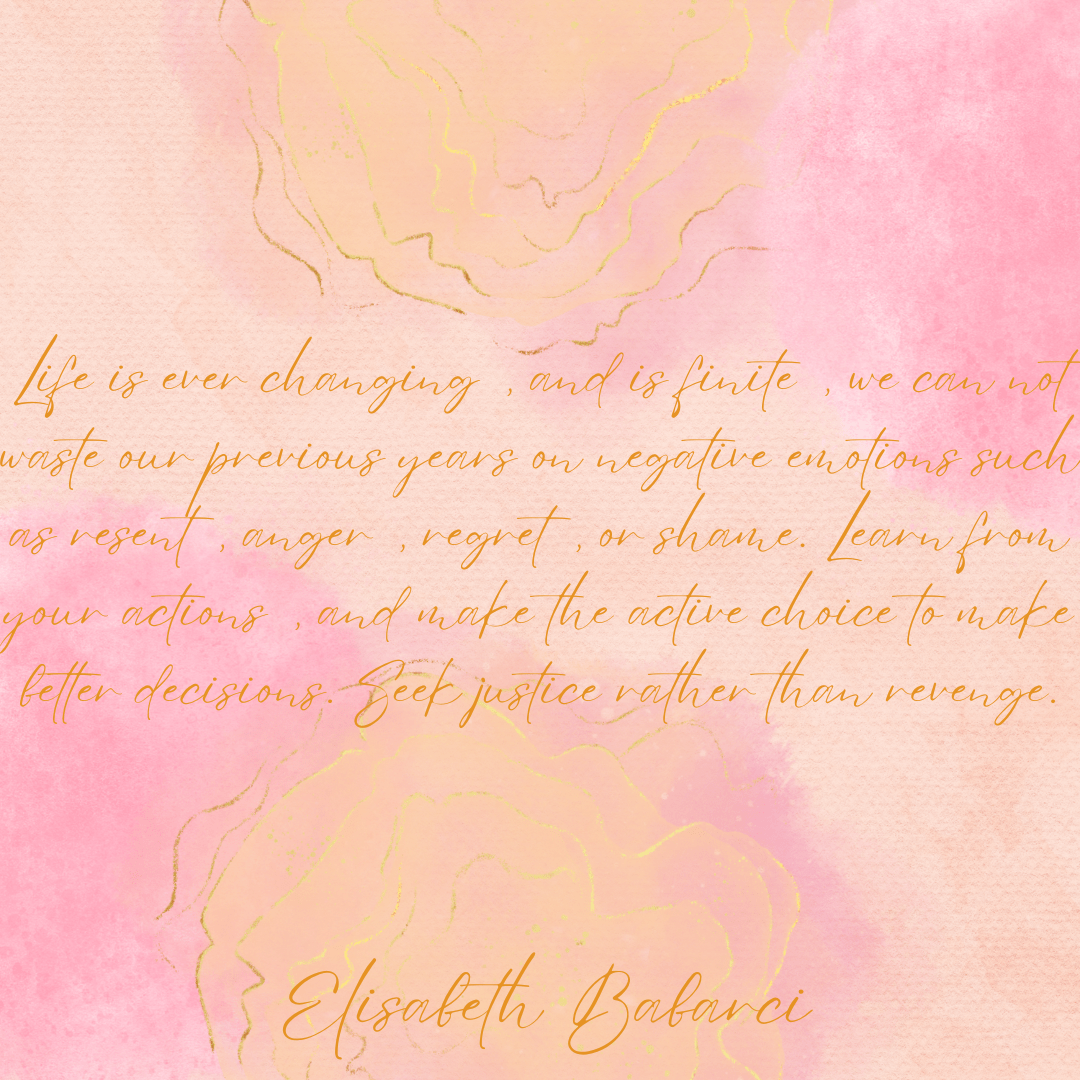 Life is ever changing , and is finite , we can not
waste our previous years on negative emotions such
as resent , anger , regret , or shame. Learn from
your actions , and make the active choice to make
better decisions. Seek justice rather than revenge.
Elisabeth Babarci